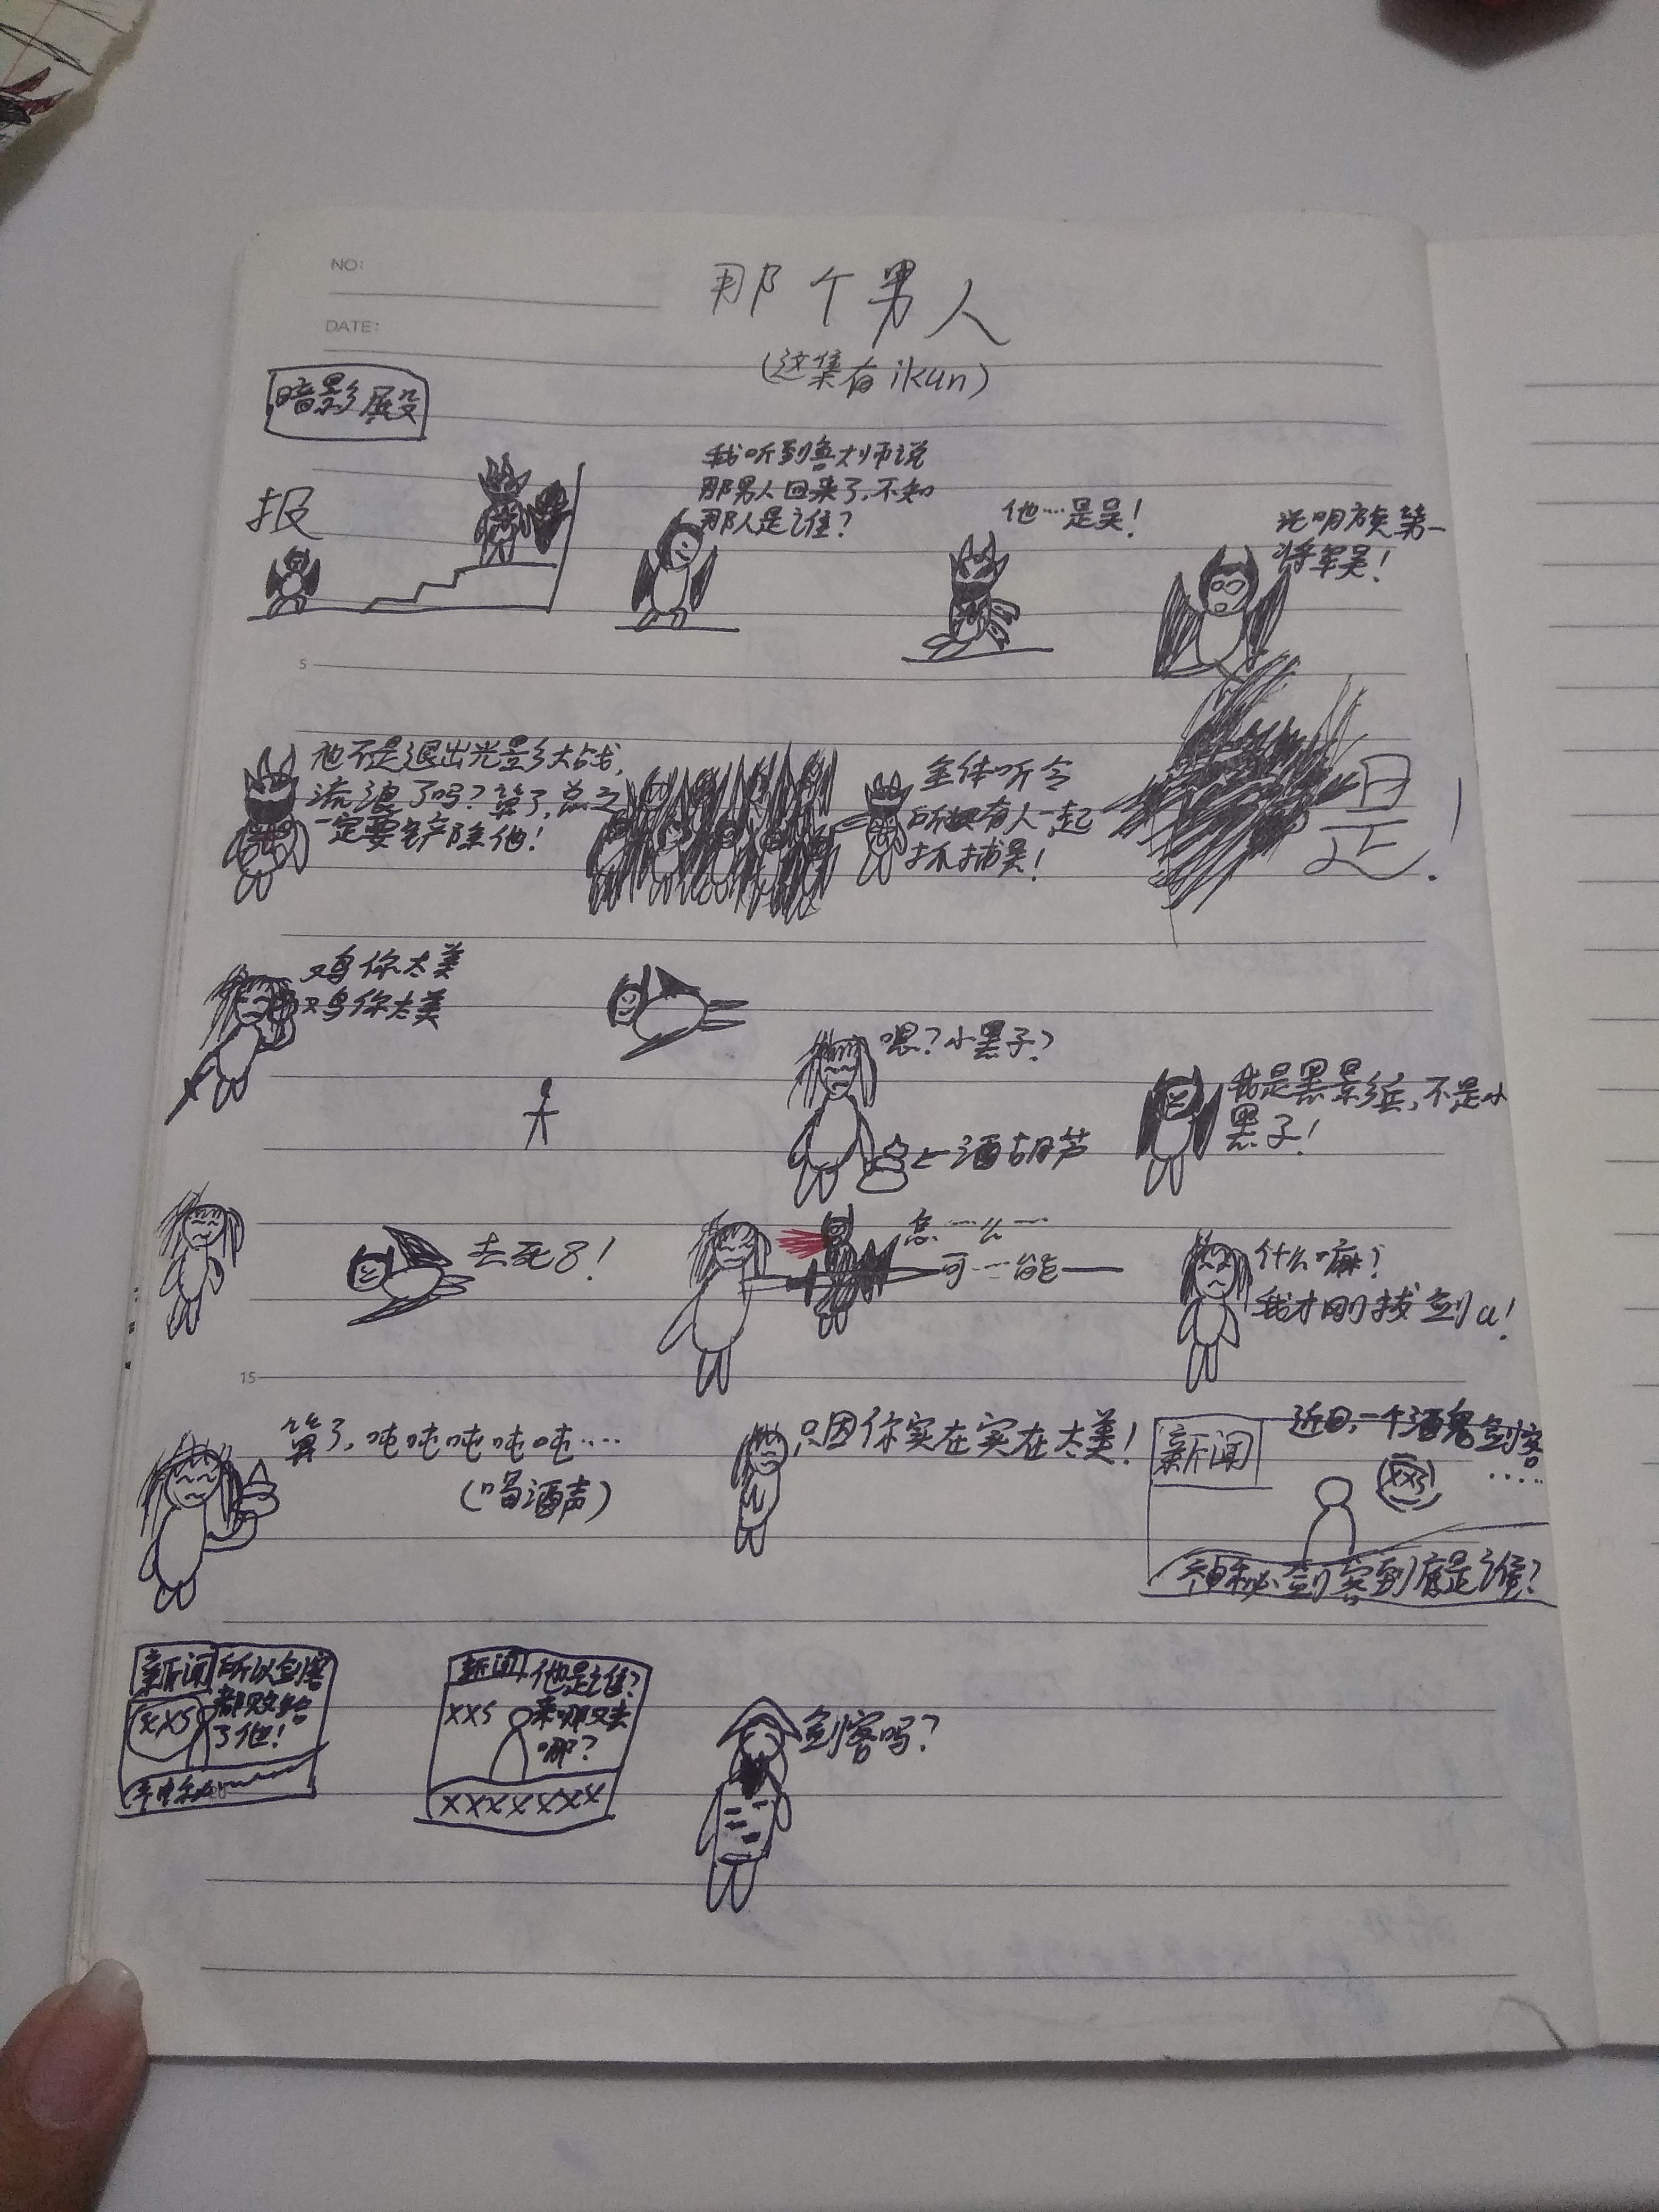 NO:
那个男人
DATE:
(这集有ikun)
暗影殿
报
我听到兽大师说
那男人回来了,不知
那人是谁?
他……是吴!
光明族第一
将军吴!
5
他不是退出光影大战,
流浪了吗?算了,总之
一定要铲除他!
全体听令
所有人一起
抓捕吴!
是!
鸡你太美
鸡你太美
嗯?小黑子?
←酒葫芦
我是黑影兵,不是小
黑子!
去死8!
怎……么……
可……能——
什么嘛?
我才刚拔剑a!
15
算了,吨吨吨吨吨……
(喝酒声)
只因你实在实在太美!
新闻
近日,一个酒鬼剑客
……
xxs
神秘剑客到底是谁?
新闻
所以剑客
都败给
了他!
xxs
新闻
他是谁?
来哪又去
哪?
xxs
xxxxxxx
剑客吗?